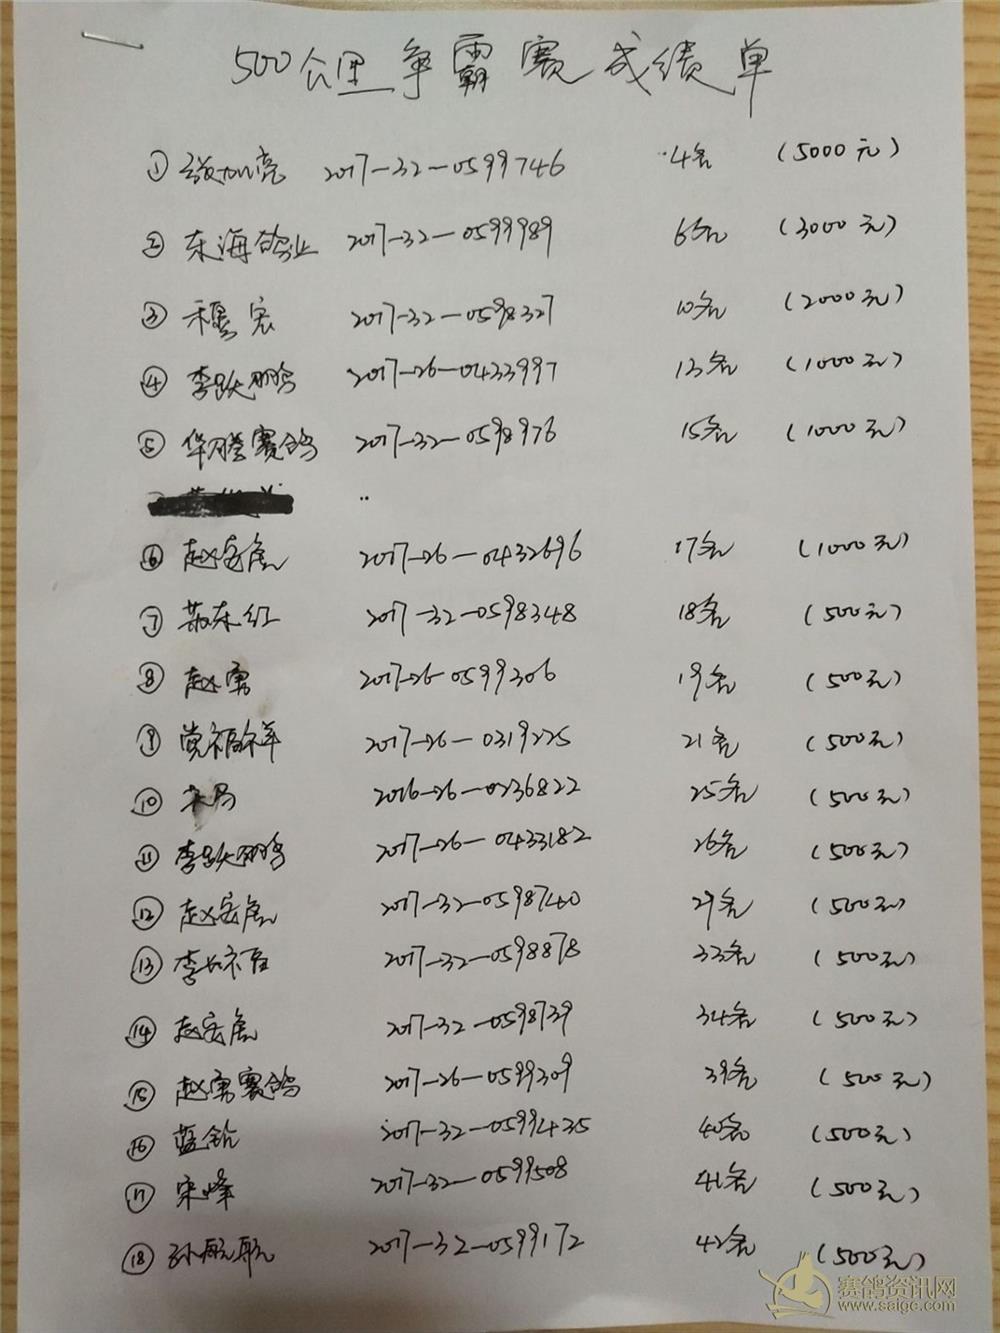 500公里争霸赛成绩单
① 张加亮 2017-32-0599746 4名 (5000元)
② 东海鸽业 2017-32-0599989 6名 (3000元)
③ 穆宏 2017-32-0598327 10名 (2000元)
④ 李跃鹏 2017-26-0433997 13名 (1000元)
⑤ 华腾赛鸽 2017-32-0598976 15名 (1000元)
⑥ 赵宏彪 2017-26-0432696 17名 (1000元)
⑦ 苏东红 2017-32-0598348 18名 (500元)
⑧ 赵勇 2017-26-0599306 19名 (500元)
⑨ 党福祥 2017-26-0319225 21名 (500元)
⑩ 2016-26-0236822 25名 (500元)
⑪ 李跃鹏 2017-26-0433182 26名 (500元)
⑫ 赵宏彪 2017-32-0598740 29名 (500元)
⑬ 李长福 2017-32-0598878 33名 (500元)
⑭ 赵宏彪 2017-32-0598739 34名 (500元)
⑮ 赵勇赛鸽 2017-26-0599309 39名 (500元)
⑯ 2017-32-0599435 40名 (500元)
⑰ 宋峰 2017-32-0599508 41名 (500元)
⑱ 孙航航 2017-32-0599172 42名 (500元)
赛鸽资讯网
www.saige.com